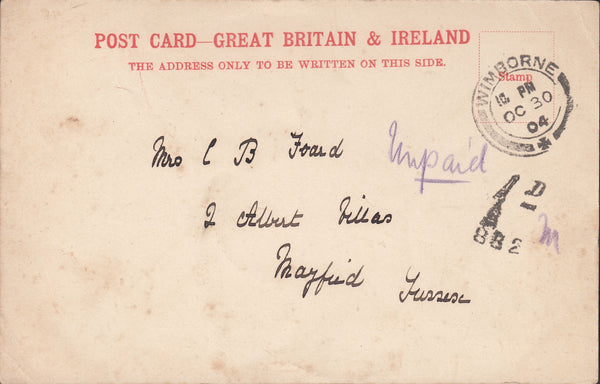 POST CARD—GREAT BRITAIN & IRELAND
THE ADDRESS ONLY TO BE WRITTEN ON THIS SIDE.
Stamp
WIMBORNE
PM
OC 30
04
Mrs C B Foard
Unpaid
2 Albert Villas
Mayfield Sussex
1 D
882
M